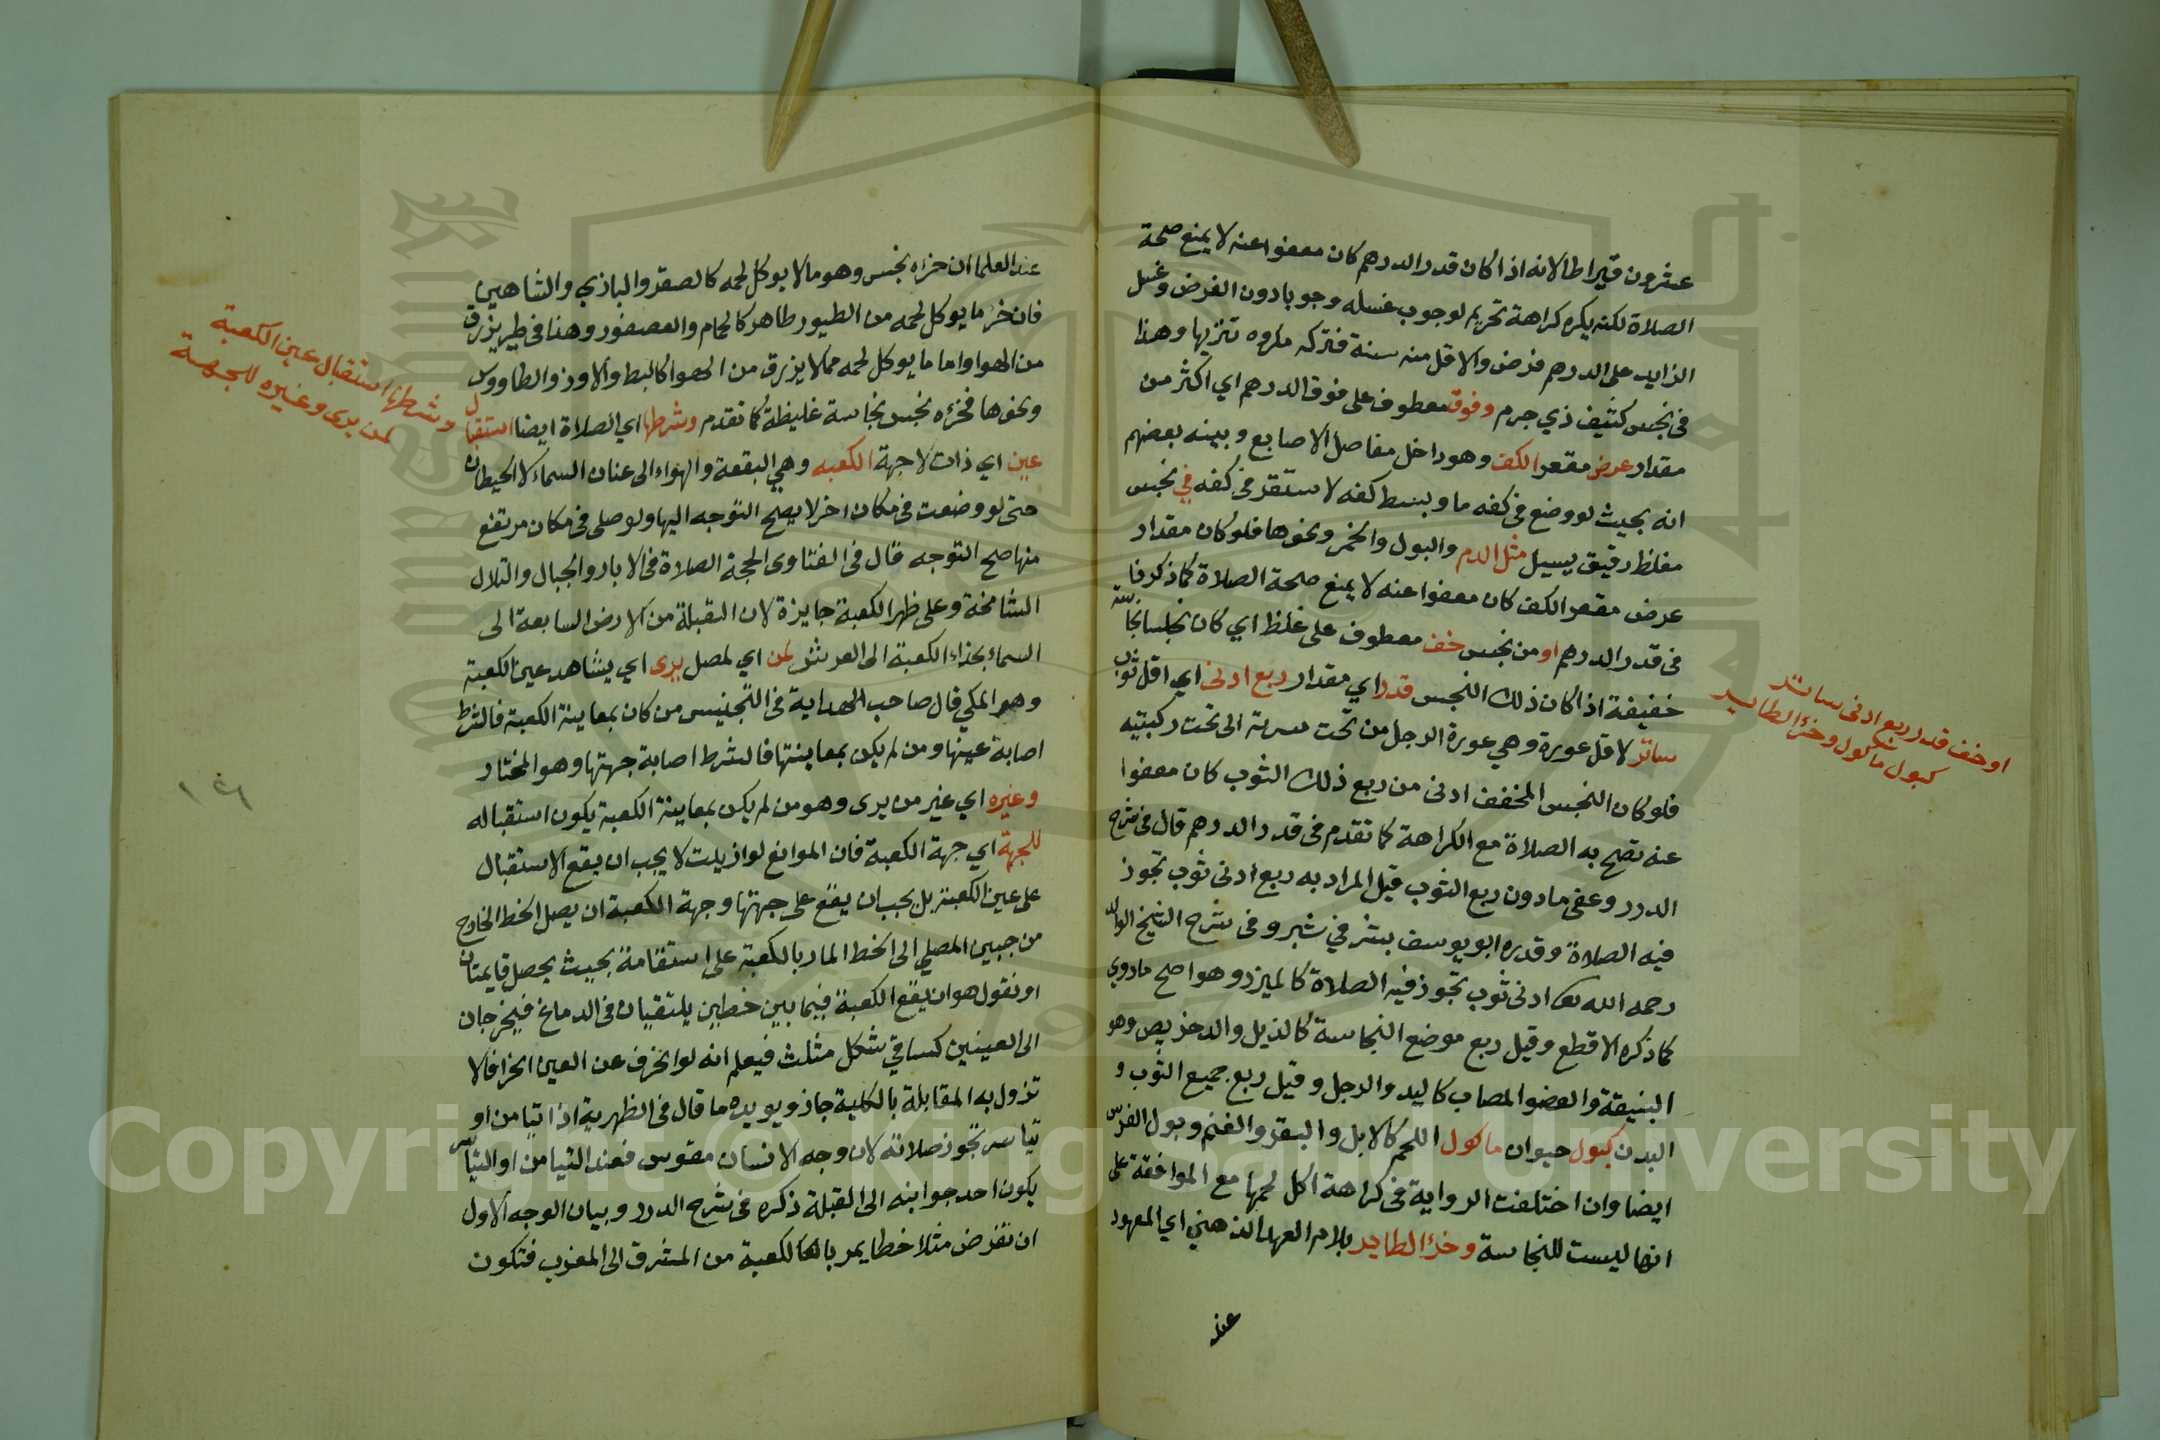 عشرون قيراطا لانه اذا كان قدر الدرهم كان معفوا عنه لا يمنع صحة
الصلاة لكنه يكره كراهة تحريم لوجوب غسله وجوبا دون الفرض وغسل
الزايد على الدرهم فرض والاقل منه سنة فتركه مكروه تنزيها وهذا
في نجس كثيف ذي جرم وفوق معطوف على فوق الدرهم اي اكثر من
مقدار عرض مقعر الكف وهو داخل مفاصل الاصابع وبينه بعضهم
انه بحيث لو وضع في كفه ما وبسط كفه لاستقر في كفه في نجس
مغلظ رقيق يسيل مثل الدم والبول والخمر ونحوها فلو كان مقدار
عرض مقعر الكف كان معفوا عنه لا يمنع صحة الصلاة كما ذكرنا
في قدر الدرهم او من نجس خف معطوف على غلظ اي كان نجسا نجاسة
خفيفة اذا كان ذلك النجس قدر اي مقدار ربع ادنى اي اقل ثوب
ساتر لاقل عورة وهي عورة الرجل من تحت سرته الى تحت ركبتيه
فلو كان النجس المخفف ادنى من ربع ذلك الثوب كان معفوا
عنه تصح به الصلاة مع الكراهة كما تقدم في قدر الدرهم قال في شرح
الدرر وعفي ما دون ربع الثوب قيل المراد به ربع ادنى ثوب تجوز
فيه الصلاة وقدره ابو يوسف بشبر في شبر وفي شرح الشيخ الوالد
رحمه الله تعالى ادنى ثوب تجوز فيه الصلاة كالميزر وهو اصح ما روي
كما ذكره الاقطع وقيل ربع موضع النجاسة كالذيل والدخريص وهو
البنيقة والعضو المصاب كاليد والرجل وقيل ربع جميع الثوب و
البدن كبول حيوان ماكول اللحم كالابل والبقر والغنم وبول الفرس
ايضا وان اختلفت الرواية في كراهة اكل لحمها مع الموافقة على
انها ليست للنجاسة وخرء الطاير بلام العهد الذهني اي المعهود
عند
او خف قدر ربع ادنى ساتر
كبول ماكول وخرء الطاير
عند العلما ان خراه نجس وهو ما لا يوكل لحمه كالصقر والبازي والشاهين
فان خرء ما يوكل لحمه من الطيور طاهر كالحمام والعصفور وهذا في طير يزرق
من الهوا واما ما يوكل لحمه مما لا يزرق من الهوا كالبط والاوز والطاووس
ونحوها فخرءه نجس نجاسة غليظة كما تقدم وشرطها اي الصلاة ايضا استقبال
عين اي ذات لا جهة الكعبه وهي البقعة والهواء الى عنان السماء لا الحيطان
حتى لو وضعت في مكان اخر لا يصح التوجه اليها ولو صلى في مكان مرتفع
منها صح التوجه قال في الفتاوى الحجة الصلاة في الابار والجبال والتلال
الشامخة وعلى ظهر الكعبة جايزة لان القبلة من الارض السابعة الى
السماء بحذاء الكعبة الى العرش لمن اي لمصل يرى اي يشاهد عين الكعبة
وهو المكي قال صاحب الهداية في التجنيس من كان بمعاينة الكعبة فالشرط
اصابة عينها ومن لم يكن بمعاينتها فالشرط اصابة جهتها وهو المختار
وغيره اي غير من يرى وهو من لم يكن بمعاينة الكعبة يكون استقباله
للجهة اي جهة الكعبة فان الموانع لو ازيلت لا يجب ان يقع الاستقبال
على عين الكعبة بل يجب ان يقع على جهتها وجهة الكعبة ان يصل الخط الخارج
من جبين المصلي الى الخط المار بالكعبة على استقامة بحيث يحصل قايمتان
او نقول هو ان تقع الكعبة فيما بين خطين يلتقيان في الدماغ فيخرجان
الى العينين كساقي شكل مثلث فيعلم انه لو انحرف عن العين انحرافا لا
تزول به المقابلة بالكلية جاز ويويده ما قال في الظهرية اذا تيامن او
تياسر تجوز صلاته لان وجه الانسان مقوس فعند التيامن او التياسر
يكون احد جوانبه الى القبلة ذكره في شرح الدرر وبيان الوجه الاول
ان نفرض مثلا خطا يمر بالكعبة من المشرق الى المغرب فتكون
وشرطها استقبال عين الكعبة
لمن يرى وغيره للجهة
Copyright © King Saud University